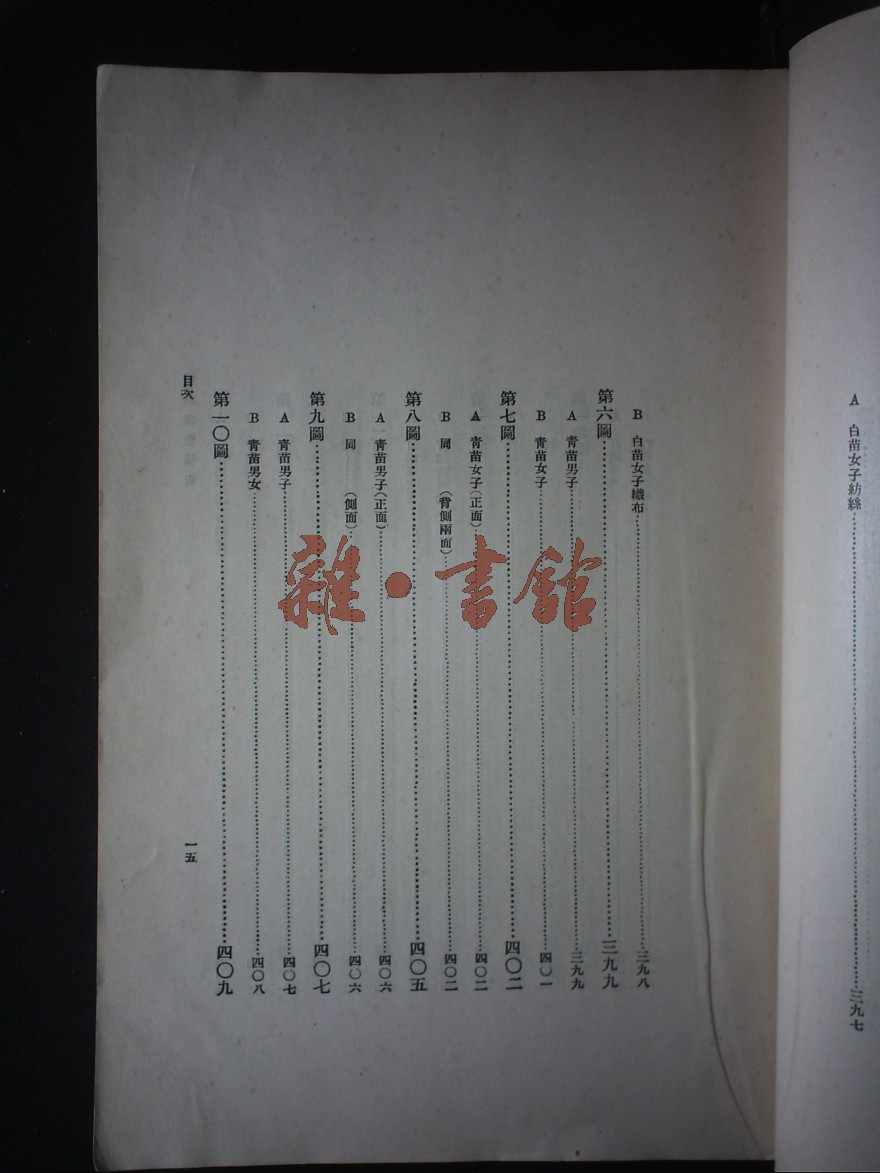 A 白苗女子紡絲……三九七
B 白苗女子織布……三九八
第六圖……三九九
A 青苗男子……三九九
B 青苗女子……四〇一
第七圖……四〇二
A 青苗女子(正面)……四〇二
B 同 (背側兩面)……四〇二
第八圖……四〇五
A 青苗男子(正面)……四〇六
B 同 (側面)……四〇六
第九圖……四〇七
A 青苗男子……四〇七
B 青苗男女……四〇八
第一〇圖……四〇九
目次 一五
雜·書館